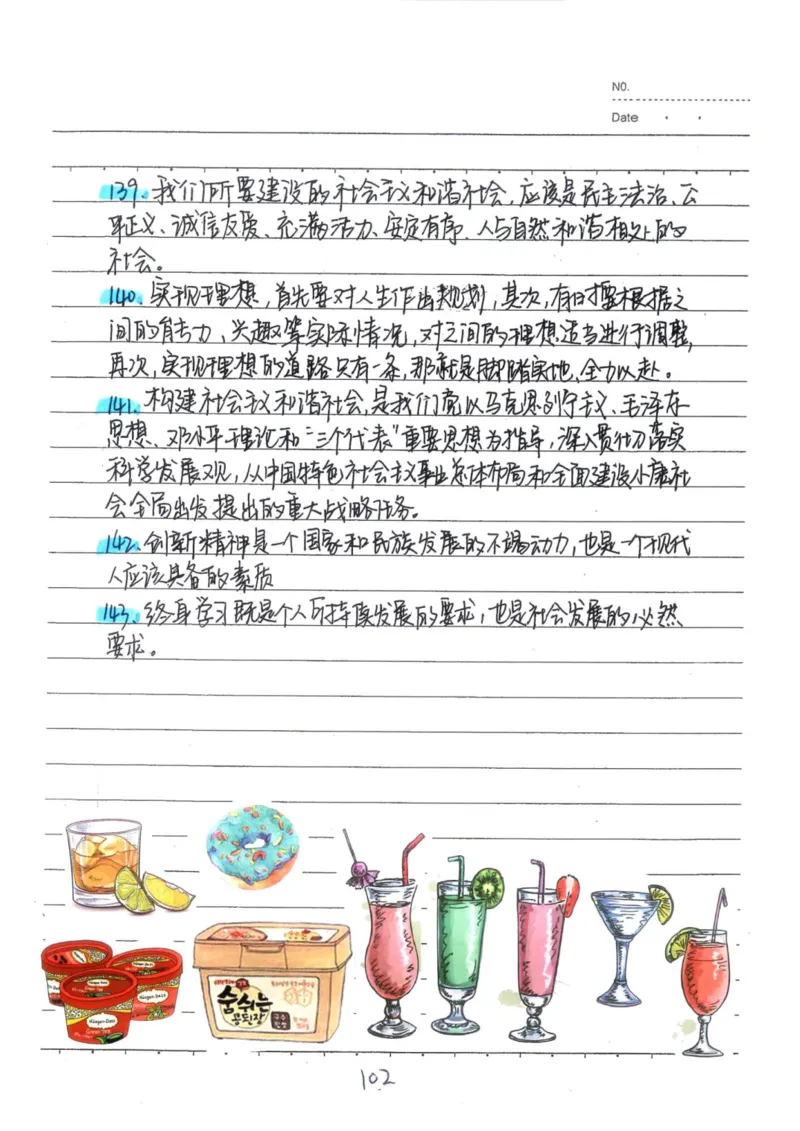 NO.
Date
139. 我们所要建设的社会主义和谐社会,应该是民主法治、公
平正义、诚信友爱、充满活力、安定有序、人与自然和谐相处的
社会。
140. 实现理想,首先要对人生作出规划,其次,有时要根据之
间的能力、兴趣等实际情况,对之间的理想适当进行调整,
再次,实现理想的道路只有一条,那就是脚踏实地、全力以赴。
141. 构建社会主义和谐社会,是我们党以马克思列宁主义、毛泽东
思想、邓小平理论和“三个代表”重要思想为指导,深入贯彻落实
科学发展观,从中国特色社会主义事业总体布局和全面建设小康社
会全局出发提出的重大战略任务。
142. 创新精神是一个国家和民族发展的不竭动力,也是一个现代
人应该具备的素质
143. 终身学习既是个人可持续发展的要求,也是社会发展的必然
要求。
Häagen-Dazs
Green Tea
숨쉬는
콩된장
102